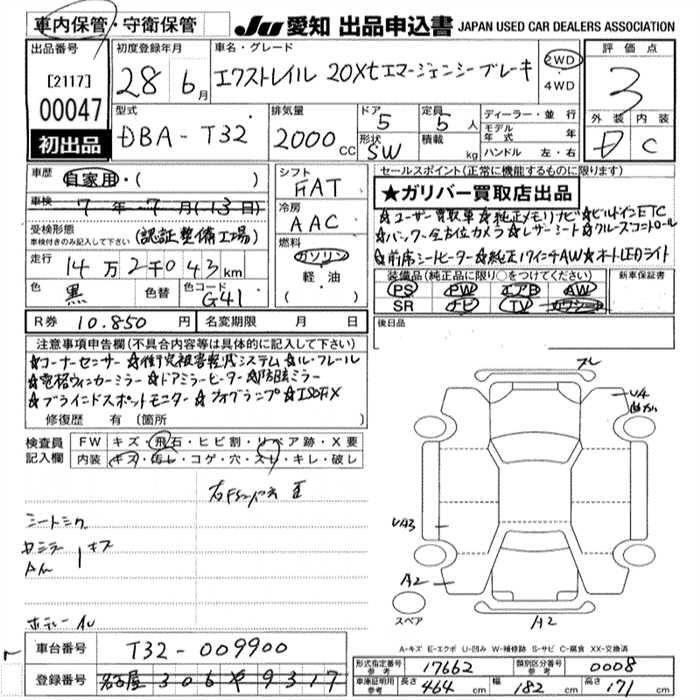 車内保管・守衛保管
JU 愛知 出品申込書 JAPAN USED CAR DEALERS ASSOCIATION
出品番号
[2117]
00047
初出品
初度登録年月
28年 6月
車名・グレード
エクストレイル 20Xt エマージェンシーブレーキ
2WD
4WD
評価点
3
外装 内装
D C
型式
DBA-T32
排気量
2000 cc
ドア
5
形状
SW
定員
5人
積載
kg
ディーラー・並行
モデル年式 年
ハンドル 左・右
車歴
自家用・( )
車検
7年 7月(13日)
受検形態
車検付きのみ記入して下さい
(認証整備工場)
走行
14万2千043km
色
黒
色替
色コード
G41
シフト
FAT
冷房
AAC
燃料
ガソリン
軽・油
( )
セールスポイント(正常に機能するものに限ります)
★ガリバー買取店出品
☆ユーザー買取車☆純正メモリナビ☆ビルトインETC
☆バック、全方位カメラ☆レザーシート☆クルーズコントロール
☆前席シートヒーター☆純正17インチAW☆オートLEDライト
装備品(純正品に限り○をつけてください)
PS PW エアB AW
SR ナビ TV カワシート
新車保証書
後日品
R券 10.850円
名変期限 月 日
注意事項申告欄(不具合内容等は具体的に記入して下さい)
☆コーナーセンサー☆衝突被害軽減システム☆ル・フレール
☆電格ウィンカーミラー☆ドアミラーヒーター☆防眩ミラー
☆ブラインドスポットモニター☆フォグランプ☆ISOFIX
修復歴 有 〔箇所
検査員記入欄
FW キズ・飛石・ヒビ割・リペア跡・X要
内装 キズ・汚レ・コゲ・穴・スレ・キレ・破レ
シートシワ
キズ
フレ
U4
UA3
A2
A2
スペア
A-キズ E-エクボ U-凹み W-補修跡 S-サビ C-腐食 XX-交換済
車台番号
T32-009900
登録番号
名古屋 306 や 9317
形式指定番号 参考
17662
類別区分番号 参考
0008
車庫証明用 参考
長さ 464cm 幅 182cm 高さ 171cm